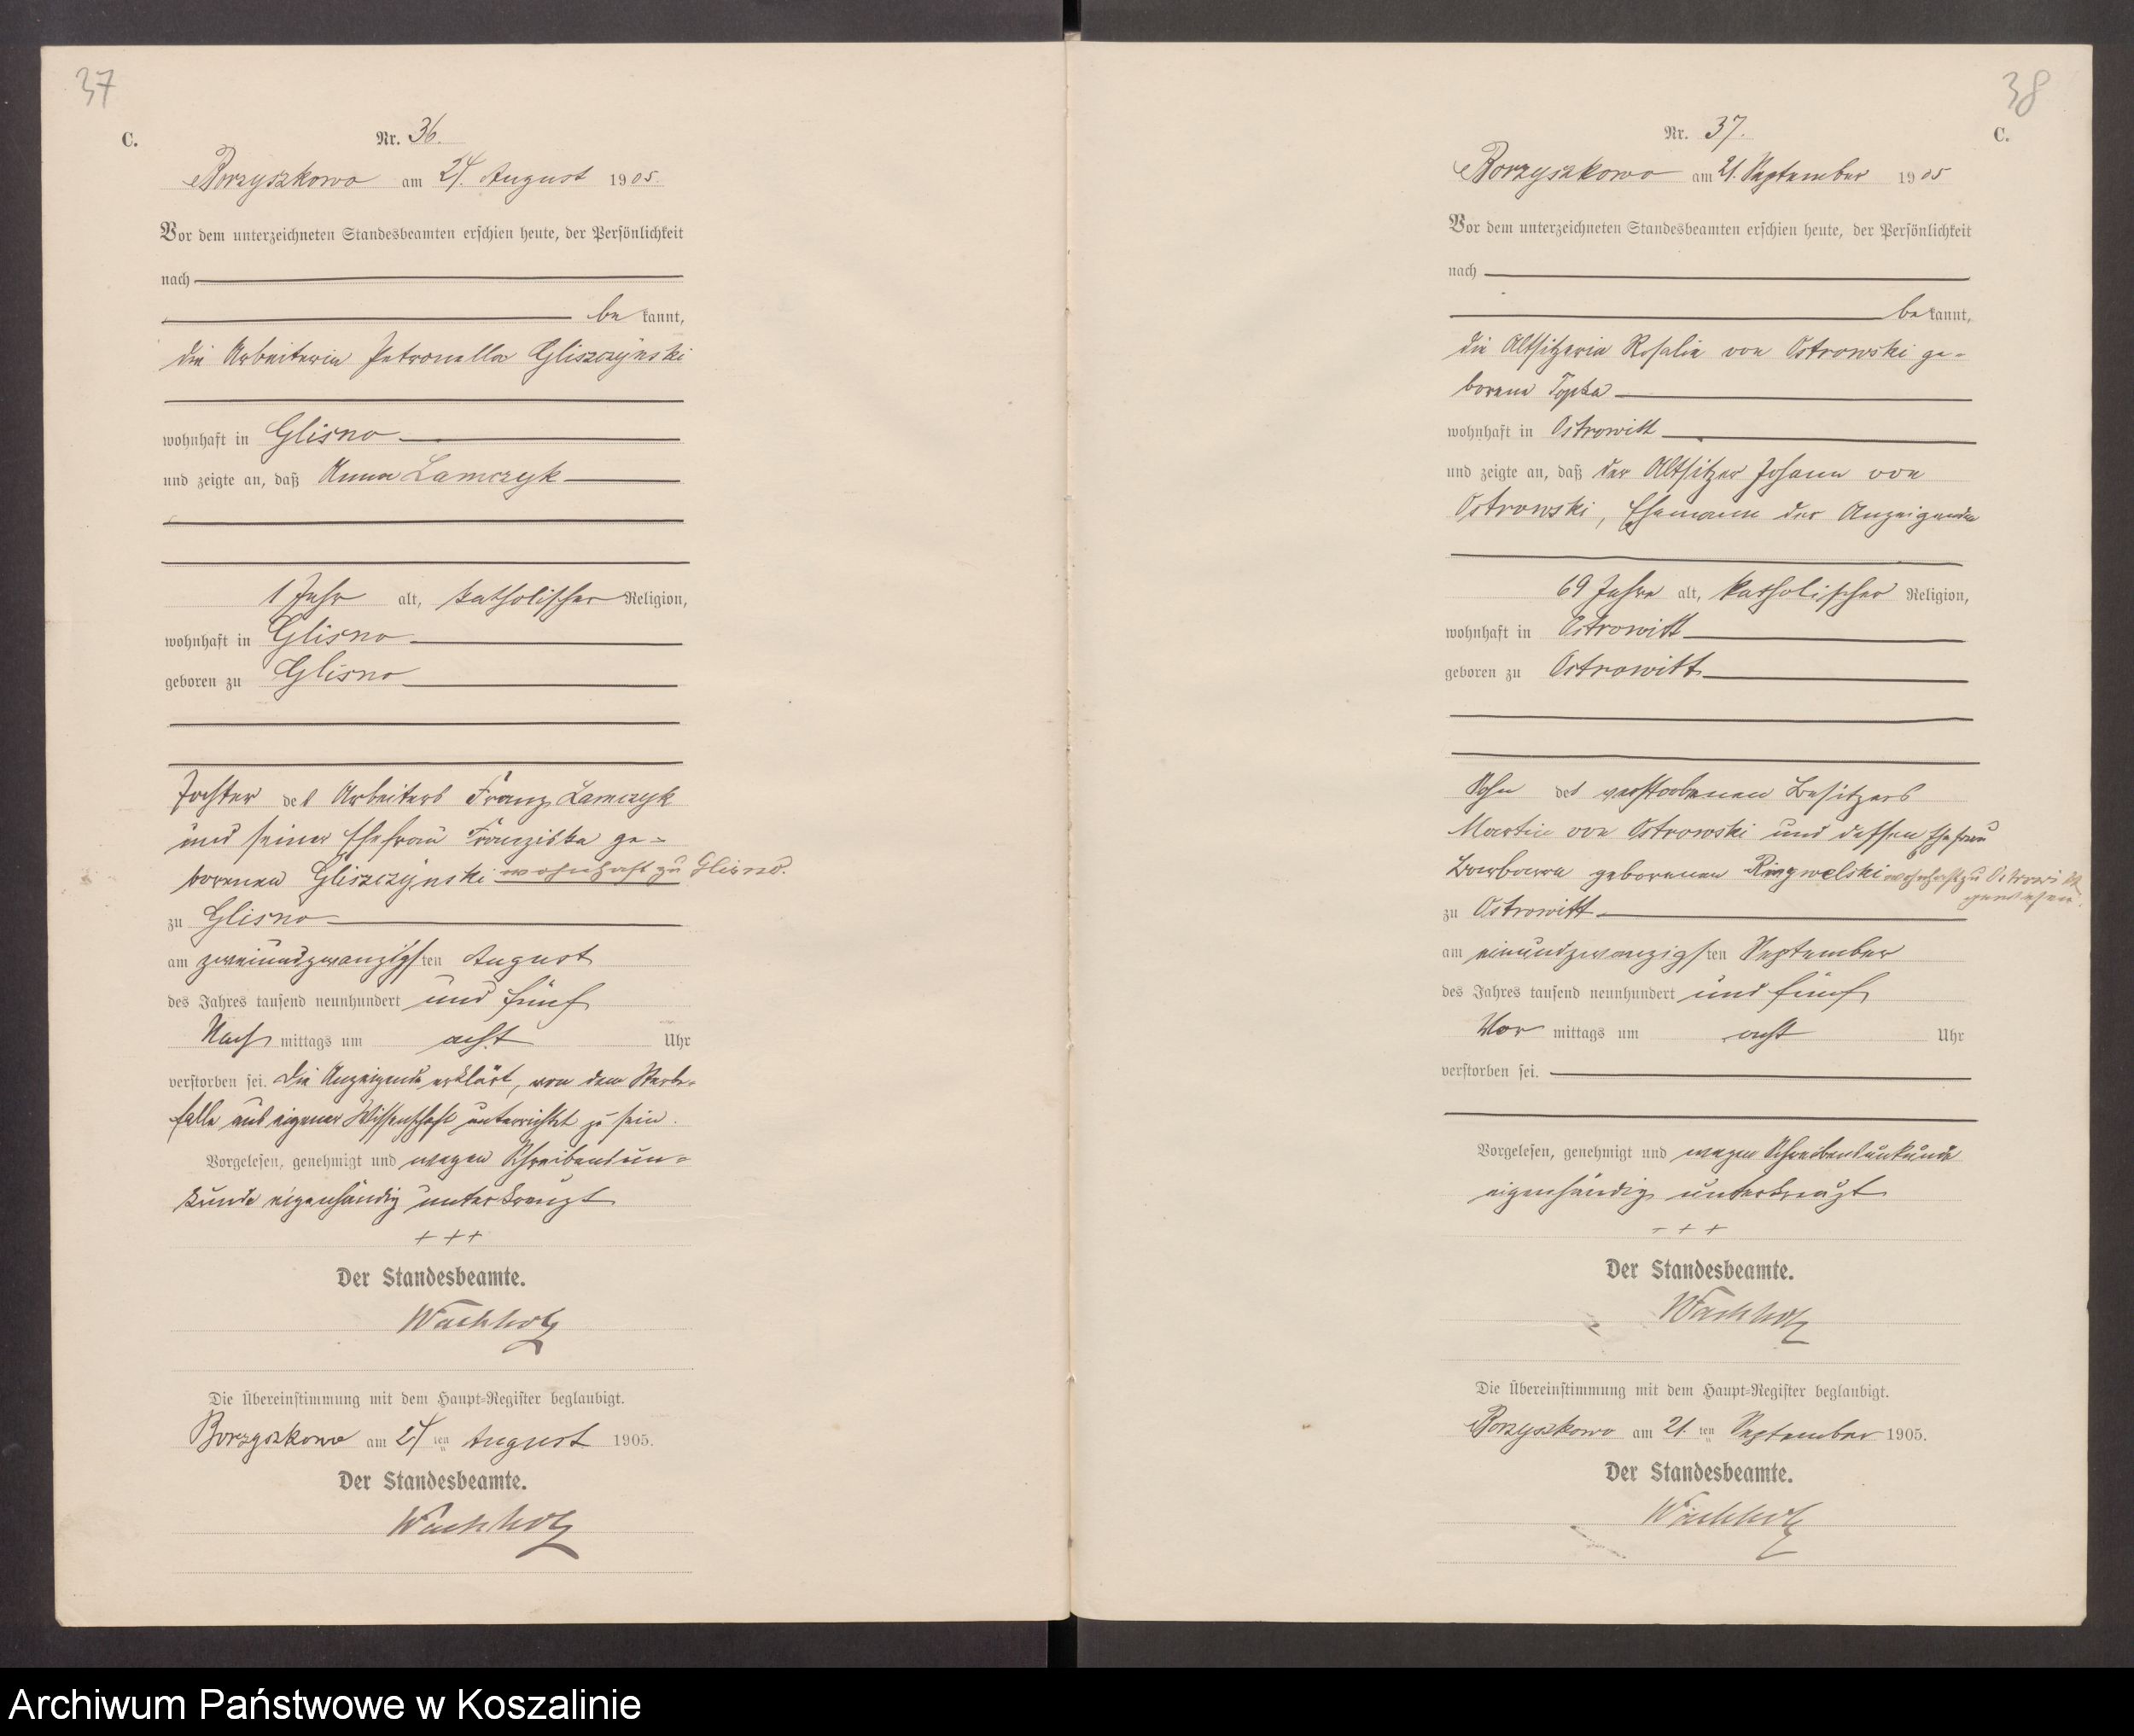 37
C.
Nr. 36.
Borzyszkowo am 24. August 1905.
Vor dem unterzeichneten Standesbeamten erschien heute, der Persönlichkeit
nach
be kannt,
die Arbeiterin Petronella Gliszczynski
wohnhaft in Glisno
und zeigte an, daß Anna Lamczyk
1 Jahr alt, katholischer Religion,
wohnhaft in Glisno
geboren zu Glisno
Tochter des Arbeiters Franz Lamczyk
und seiner Ehefrau Franziska ge-
borenen Gliszczynski wohnhaft zu Glisno.
zu Glisno
am zweiundzwanzigsten August
des Jahres tausend neunhundert und fünf
Nach mittags um acht Uhr
verstorben sei. Die Anzeigende erklärt, von dem Sterbe-
falle aus eigener Wissenschaft unterrichtet zu sein.
Vorgelesen, genehmigt und wegen Schreibensun-
kunde eigenhändig unterkreuzt
+ + +
Der Standesbeamte.
Wachholz
Die Übereinstimmung mit dem Haupt-Register beglaubigt.
Borzyszkowo am 24 ten August 1905.
Der Standesbeamte.
Wachholz
38
Nr. 37.
C.
Borzyszkowo am 21. September 1905
Vor dem unterzeichneten Standesbeamten erschien heute, der Persönlichkeit
nach
be kannt,
die Altsitzerin Rosalie von Ostrowski ge-
borene Topka
wohnhaft in Ostrowitt
und zeigte an, daß der Altsitzer Johann von
Ostrowski, Ehemann der Anzeigenden
69 Jahre alt, katholischer Religion,
wohnhaft in Ostrowitt
geboren zu Ostrowitt
Sohn des verstorbenen Besitzers
Martin von Ostrowski und dessen Ehefrau
Barbara geborenen Ringwelski wohnhaft zu Ostrowitt
gewesen.
zu Ostrowitt
am einundzwanzigsten September
des Jahres tausend neunhundert und fünf
Vor mittags um acht Uhr
verstorben sei.
Vorgelesen, genehmigt und wegen Schreibensunkunde
eigenhändig unterkreuzt
+ + +
Der Standesbeamte.
Wachholz
Die Übereinstimmung mit dem Haupt-Register beglaubigt.
Borzyszkowo am 21. ten September 1905.
Der Standesbeamte.
Wachholz
Archiwum Państwowe w Koszalinie